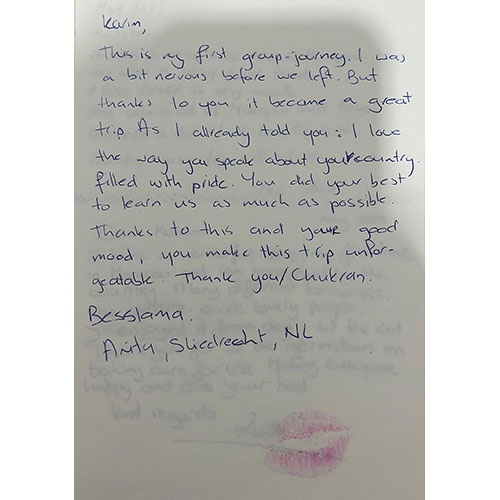 Karim,
This is my first group-journey. I was
a bit nervous before we left. But
thanks to you, it became a great
trip. As I already told you: I love
the way you speak about your country.
filled with pride. You did your best
to learn us as much as possible.
Thanks to this and your good
mood, you make this trip unfor-
geatable. Thank you/Chukran.
Besslama.
Anita, Sliedrecht, NL
kind regards